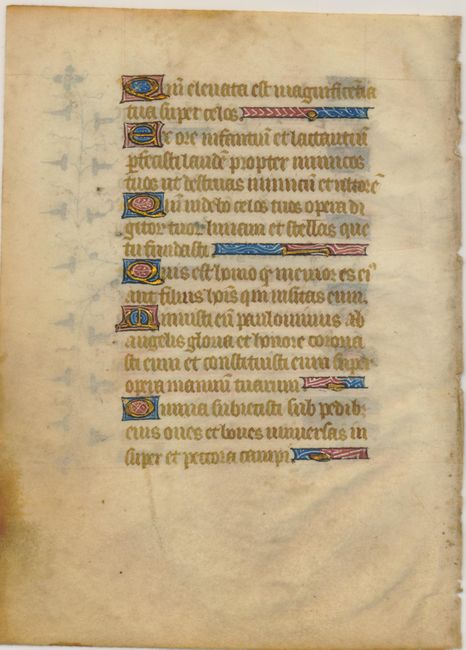 Qm̄ elevata est magnificentia
tua super celos
Ex ore infantiū et lactantiū
ꝑfecisti laudē propter inimicos
tuos ut destruas inimicū et ultorē
Qm̄ videbo celos tuos opera di
gitor tuor lunam et stellas que
tu fundasti
Quis est homo ꝙ memor es ei⁹
aut filius hoīs qm̄ visitas eum.
Minuisti eū paulominus ab
angelis gloria et honore corona
sti eum et constituisti eum super
opera manuū tuarum
Omnia subiecisti sub pedib;
eius oves et boves universas in
super et peccora campi